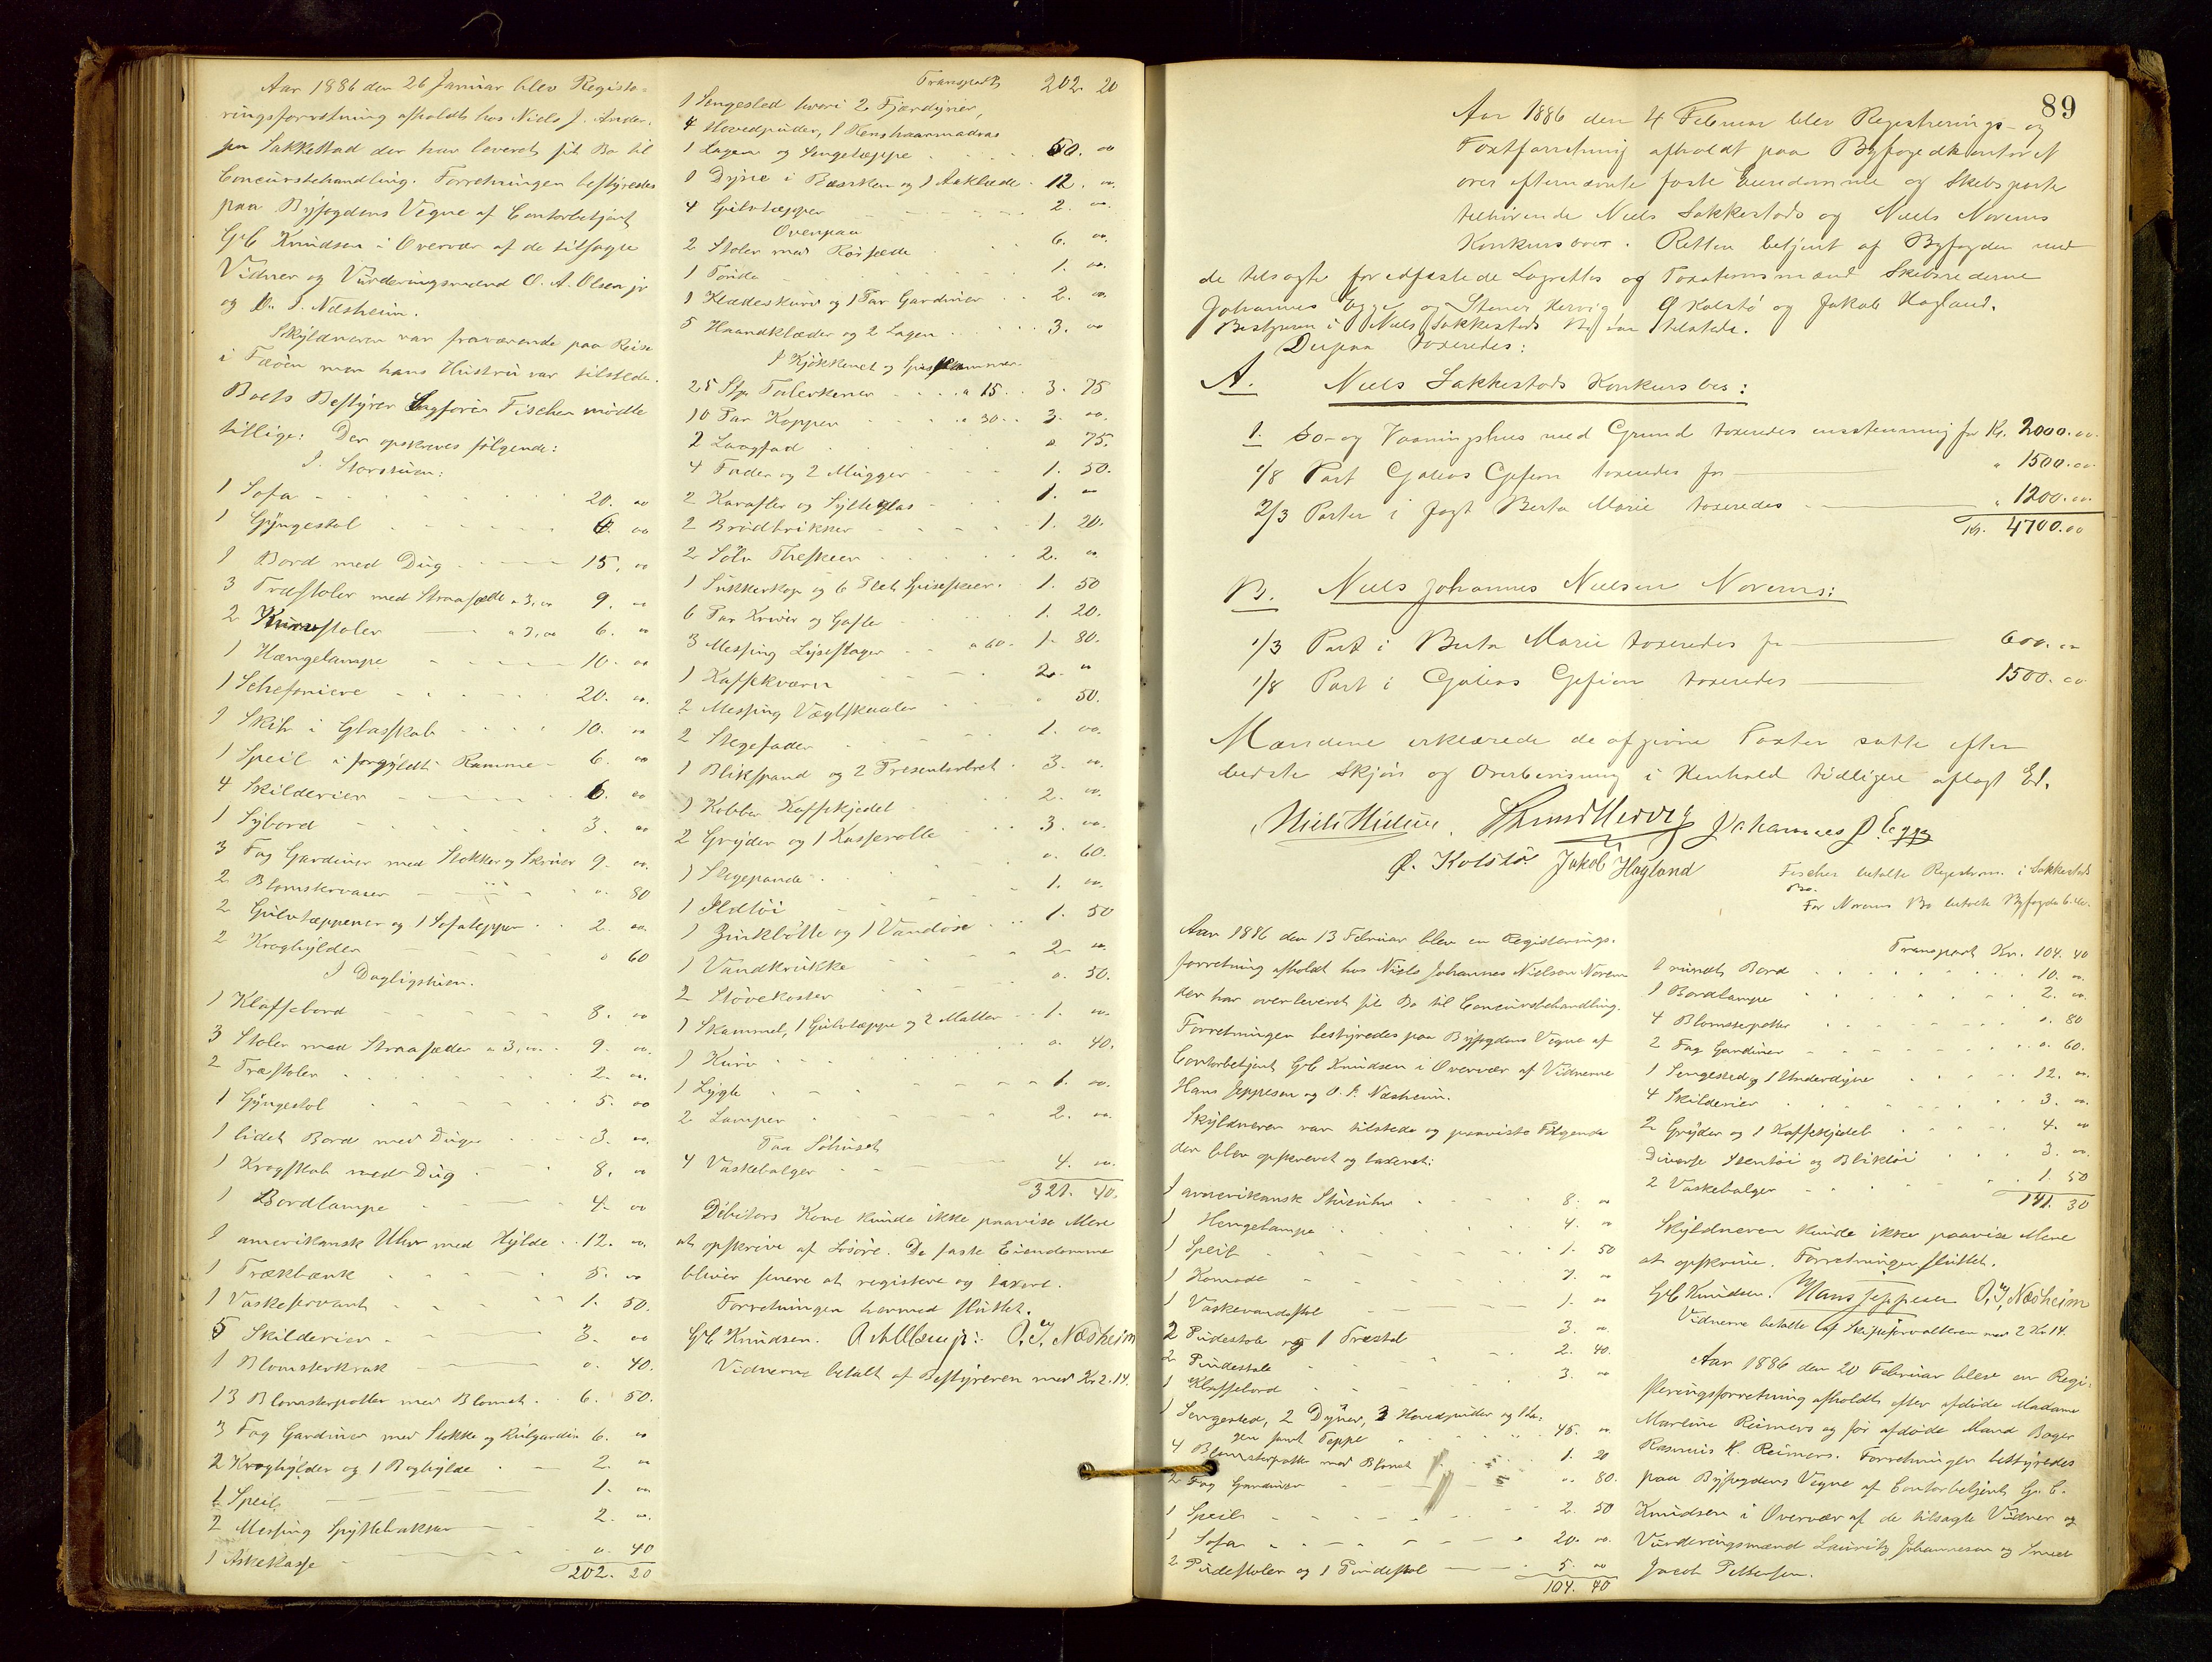 Aar 1886 den 26 Januar blev Registe-
ringsforretning afholdt hos Niels J. Ander-
sen Sakkestad der har leveret sit Bo til
Concursbehandling. Forretningen bestyredes
paa Byfogdens Vegne af Contorbetjent
G. C. Knudsen i Overvær af de tilsagte
Vidner og Vurderingsmænd O. A. Olsen jr
og O. I. Nædsheim.
Skyldneren var fraværende paa Reise
i Fæøen men hans Hustru var tilstede.
Boets Bestyrer Sagfører Fischer mødte
tillige. Der opskreves følgende:
I Storstuen:
1 Sofa 20. 00
1 Gyngestol 6. 00
1 Bord med Dug 15. 00
3 Træstoler med Straasæde a 3,00 9. 00
2 stoler a 3,00 6. 00
1 Hængelampe 10. 00
1 Schefoniere 20. 00
1 Skib i Glasskab 10. 00
1 Speil i forgyldt Ramme 6. 00
4 Skilderier 6. 00
1 Sybord 3. 00
3 Fag Gardiner med Stokker og Skruer 9. 00
2 Blomstervaser 0. 80
2 Gulvtæppener og 1 Sofateppe 2. 00
2 Kroghylder 0 60
I Dagligstuen.
1 Klaffebord 8. 00
3 Stoler med Straasæder a 3,00 9. 00
2 Træstoler 2. 00
1 Gyngestol 5. 00
1 lidet Bord med Dug 3. 00
1 Krogskab med Dug 8. 00
1 Bordlampe 4. 00
1 amerikansk Uhr med Hylde 12. 00
1 Trækbænk 5. 00
1 Vaskeservant 1. 50.
5 Skilderier 3. 00
1 Blomsterkrak 0. 40.
13 Blomsterpotter med Blomst 6. 50.
3 Fag Gardiner med Stokke og Rulgardin 6. 00
2 Kroghylder og 1 Boghylde 2. 00
1 Speil 1. 00
2 Messing Spyttebakker 2. 00
1 Askekasse 0. 40
202. 20
Transport 202. 20
1 Sengested hvori 2 Fjærdyner,
4 Hovedpuder, 1 madras
1 Lagen og Sengetæppe 50. 00
1 Dyne i Bænken og 1 Aaklæde 12. 00
4 Gulvtæpper 2. 00
Ovenpaa
2 Stoler med Rørsæde 6. 00
1 Tønde 1. 00
1 Klædeskurv og 1 Par Gardiner 2. 00
5 Haandklæder og 2 Lagen 3. 00
I Kjøkkenet og Spisekammer
25 Stk Talerkener a 15 3. 75
10 Par Kopper a 30 3. 00
2 Langfad 0. 75.
4 Fader og 2 Mugger 1. 50.
2 Karafler og Sylteglas 1. 00
2 Brødbrikker 1. 20.
2 Sølv Theskeer 2. 00
1 Sukkerkop og 6 Plet Spiseskeer 1. 50
6 Par Kniver og Gafler 1. 20.
3 Messing Lysestager a 60. 1. 80.
1 Kaffekværn 2. 00
2 Messing Vægtskaaler 0 50.
2 Stegefader 1. 00.
1 Blikspand og 2 Presenterbret 3. 00.
1 Kobber Kaffekjedel 2. 00.
2 Gryder og 1 Kasserolle 3. 00.
1 Stegepande 0. 60.
1 Ildtøi 1. 00.
1 Zinkbøtte og 1 Vandøse 1. 50
1 Vandkrukke 2. 00
2 Støvekoster 0. 50.
1 Skammel, 1 Gulvtæppe og 2 Matter 1. 00.
1 Kurv 0. 40.
1 Lygte 1. 00.
2 Lamper 2. 00.
Paa Søhuset
4 Vaskebalger 4. 00.
321. 40.
Debitors Kone kunde ikke paavise Mere
at opskrive af Løsøre. De faste Eiendomme
bliver senere at registere og taxere.
Forretningen hermed sluttet.
G. C. Knudsen. O. A. Olsen jr. O. I. Nædsheim
Vidnerne betalt af Bestyreren med Kr 2.14.
89
Aar 1886 den 4 Februar blev Registrerings- og
Taxtforretning afholdt paa Byfogedkontoret
over efternævnte faste Eiendomme og Skibsparter
tilhørende Niels Sakkestads og Niels Norems
Konkursboer. Retten betjent af Byfogden med
de tilsagte foredfæstede Lagrettes og Taxationsmænd Skibsrederne
Johannes Egge og Stener Hervig Ø Kolstø og Jakob Hagland.
Bestyreren i Niels Sakkestads Bo var tilstede.
Derpaa taxeredes:
A. Niels Sakkestads Konkursbo:
1. Sø- og Vaaningshus med Grund taxeredes enstemmig for Kr. 2000.00.
1/8 Part Galeas Gefion taxeredes for " 1500.00
2/3 Parter i Jagt Berta Marie taxeredes " 1200.00
Kr. 4700.00
B. Niels Johannes Nielsen Norems:
1/3 Part i Berta Marie taxeredes for 600.00
1/8 Part i Galeas Gefion taxeredes 1500.00
Mændene erklærede de afgivne Taxter satte efter
bedste Skjøn og Overbevisning i Henhold tidligere aflagt Ed.
Niels Nielsen. Hervig Johannes J. Egge
Ø. Kolstø Jakob Hagland
Fischer betalte Registrer. i Sakkestads
Bo.
For Norems Bo betalte Byfogden
Aar 1886 den 13 Februar blev en Registerings-
forretning afholdt hos Niels Johannes Nielsen Norem
der har overleveret sit Bo til Concursbehandling.
Forretningen bestyredes paa Byfogdens Vegne af
Contorbetjent G. C. Knudsen i Overvær af Vidnerne
Hans Jeppesen og O. I. Nædsheim.
Skyldneren var tilstede og paaviste Følgende
der blev opskrevet og taxeret:
1 amerikansk Stueuhr 8. 00
1 Hengelampe 4. 00
1 Speil 1. 50
1 Komode 7. 00
1 Vaskevandsstol 1. 00
2 Pudestole og 1 Træstol 3. 00
2 Pindestole 2. 40.
1 Klaffebord 3. 00
1 Sengested, 2 Dyner, 3 Hovedpuder og 1 La-
gen samt Teppe 45. 00
4 Blomsterpotte med Blomst 1. 20
2 Fag Gardiner 0. 80.
1 Speil 2. 50
1 Sofa 20. 00.
2 Pudestoler og 1 Pindestol 5. 00
104. 40
Transport Kr. 104. 40
1 rundt Bord 10. 00.
1 Bordlampe 2. 00.
4 Blomsterpotter 0. 80
2 Fag Gardiner 0. 60.
1 Sengested og 1 Underdyne 12. 00.
4 Skilderier 3. 00.
2 Gryder og 1 Kaffekjedel 4. 00
Diverse Stentøi og Bliktøi 3. 00.
2 Vaskebalger 1. 50
141. 30
Skyldneren kunde ikke paavise Mere
at opskrive. Forretningen sluttet.
G. C. Knudsen. Hans Jeppesen O. I. Nædsheim
Vidnerne betalte af Skifteforvalteren med 2 Kr 14.
Aar 1886 den 20 Februar blev en Regi-
steringsforretning afholdt efter afdøde Madame
Martine Reimers og før afdøde Mand Bager
Rasmus H. Reimers. Forretningen bestyredes
paa Byfogdens Vegne af Contorbetjent G. C.
Knudsen i Overvær af de tilsagte Vidner og
Vurderingsmænd Lauritz Johannesen og Smed
Jacob Pettersen.